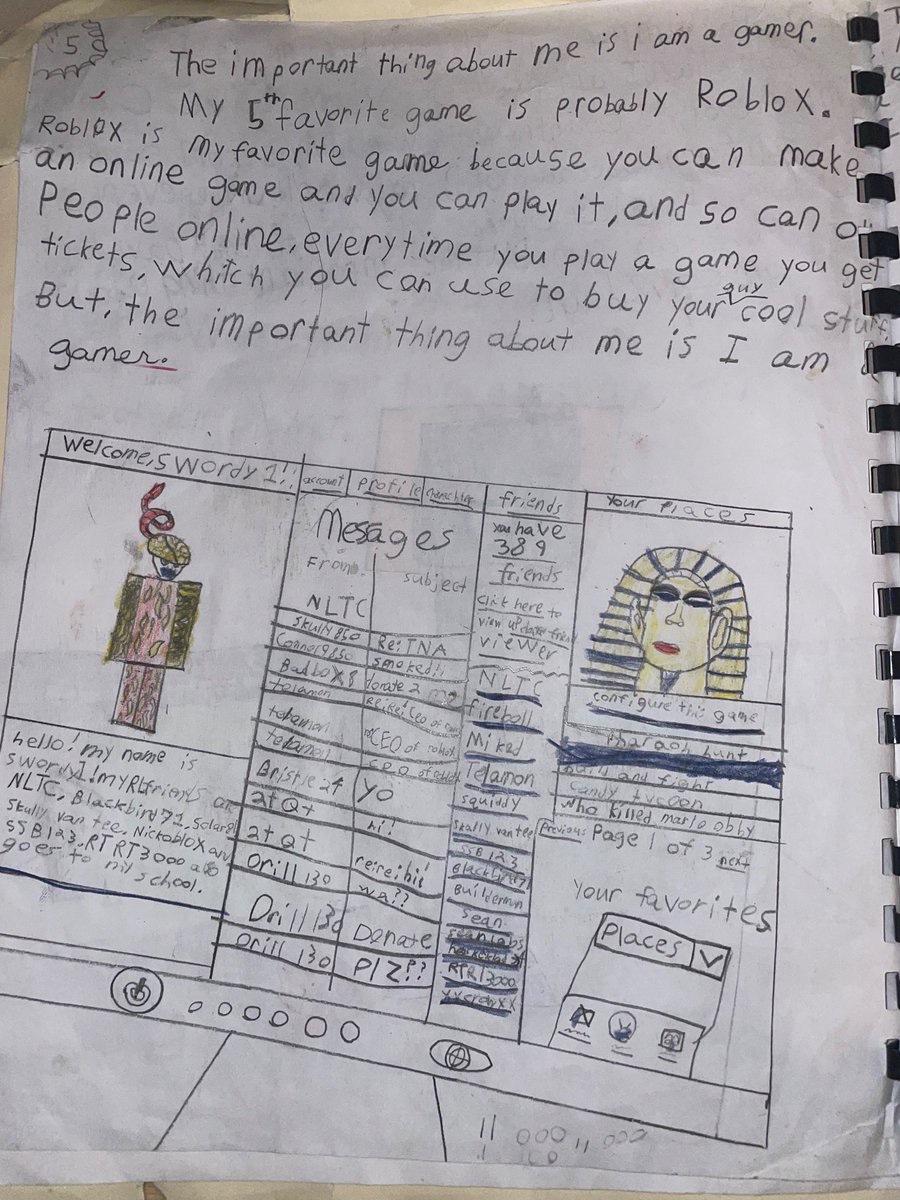 5
The important thing about me is i am a gamer.
My 5th favorite game is probably Roblox.
Roblox is my favorite game because you can make
an online game and you can play it, and so can
People online, everytime you play a game you get
tickets, whitch you can use to buy your guy cool stuff
But, the important thing about me is I am a
gamer.
Welcome, swordy1!!
account profile
friends
Your Places
Mesages
From: subject
you have
389
friends
Click here to
view
viewer
NLTC
Skully850 Re: TNA
Connor9650 smoked!!
telamon
telamon CEO of
telamon CEO of
yo
2tQt hi!
2tQt re: re: hi!
Drill130 wa??
Drill130 Donate
Drill130 PlZ??
NLTC
fireball
Miked
Telamon
squiddy
Skully van tee
SSB123
Blackbird71
Builderman
Sean
RTRT3000
configure this game
pharaoh hunt
and fight
candy tycoon
Who killed mario obby
Previous Page 1 of 3 next
Your favorites
Places
hello! my name is
swordy1! my RLfriends are
NLTC, Blackbird71,
Skully van tee, Nickoblox
SSB123, RTRT3000 also
goes to my school.